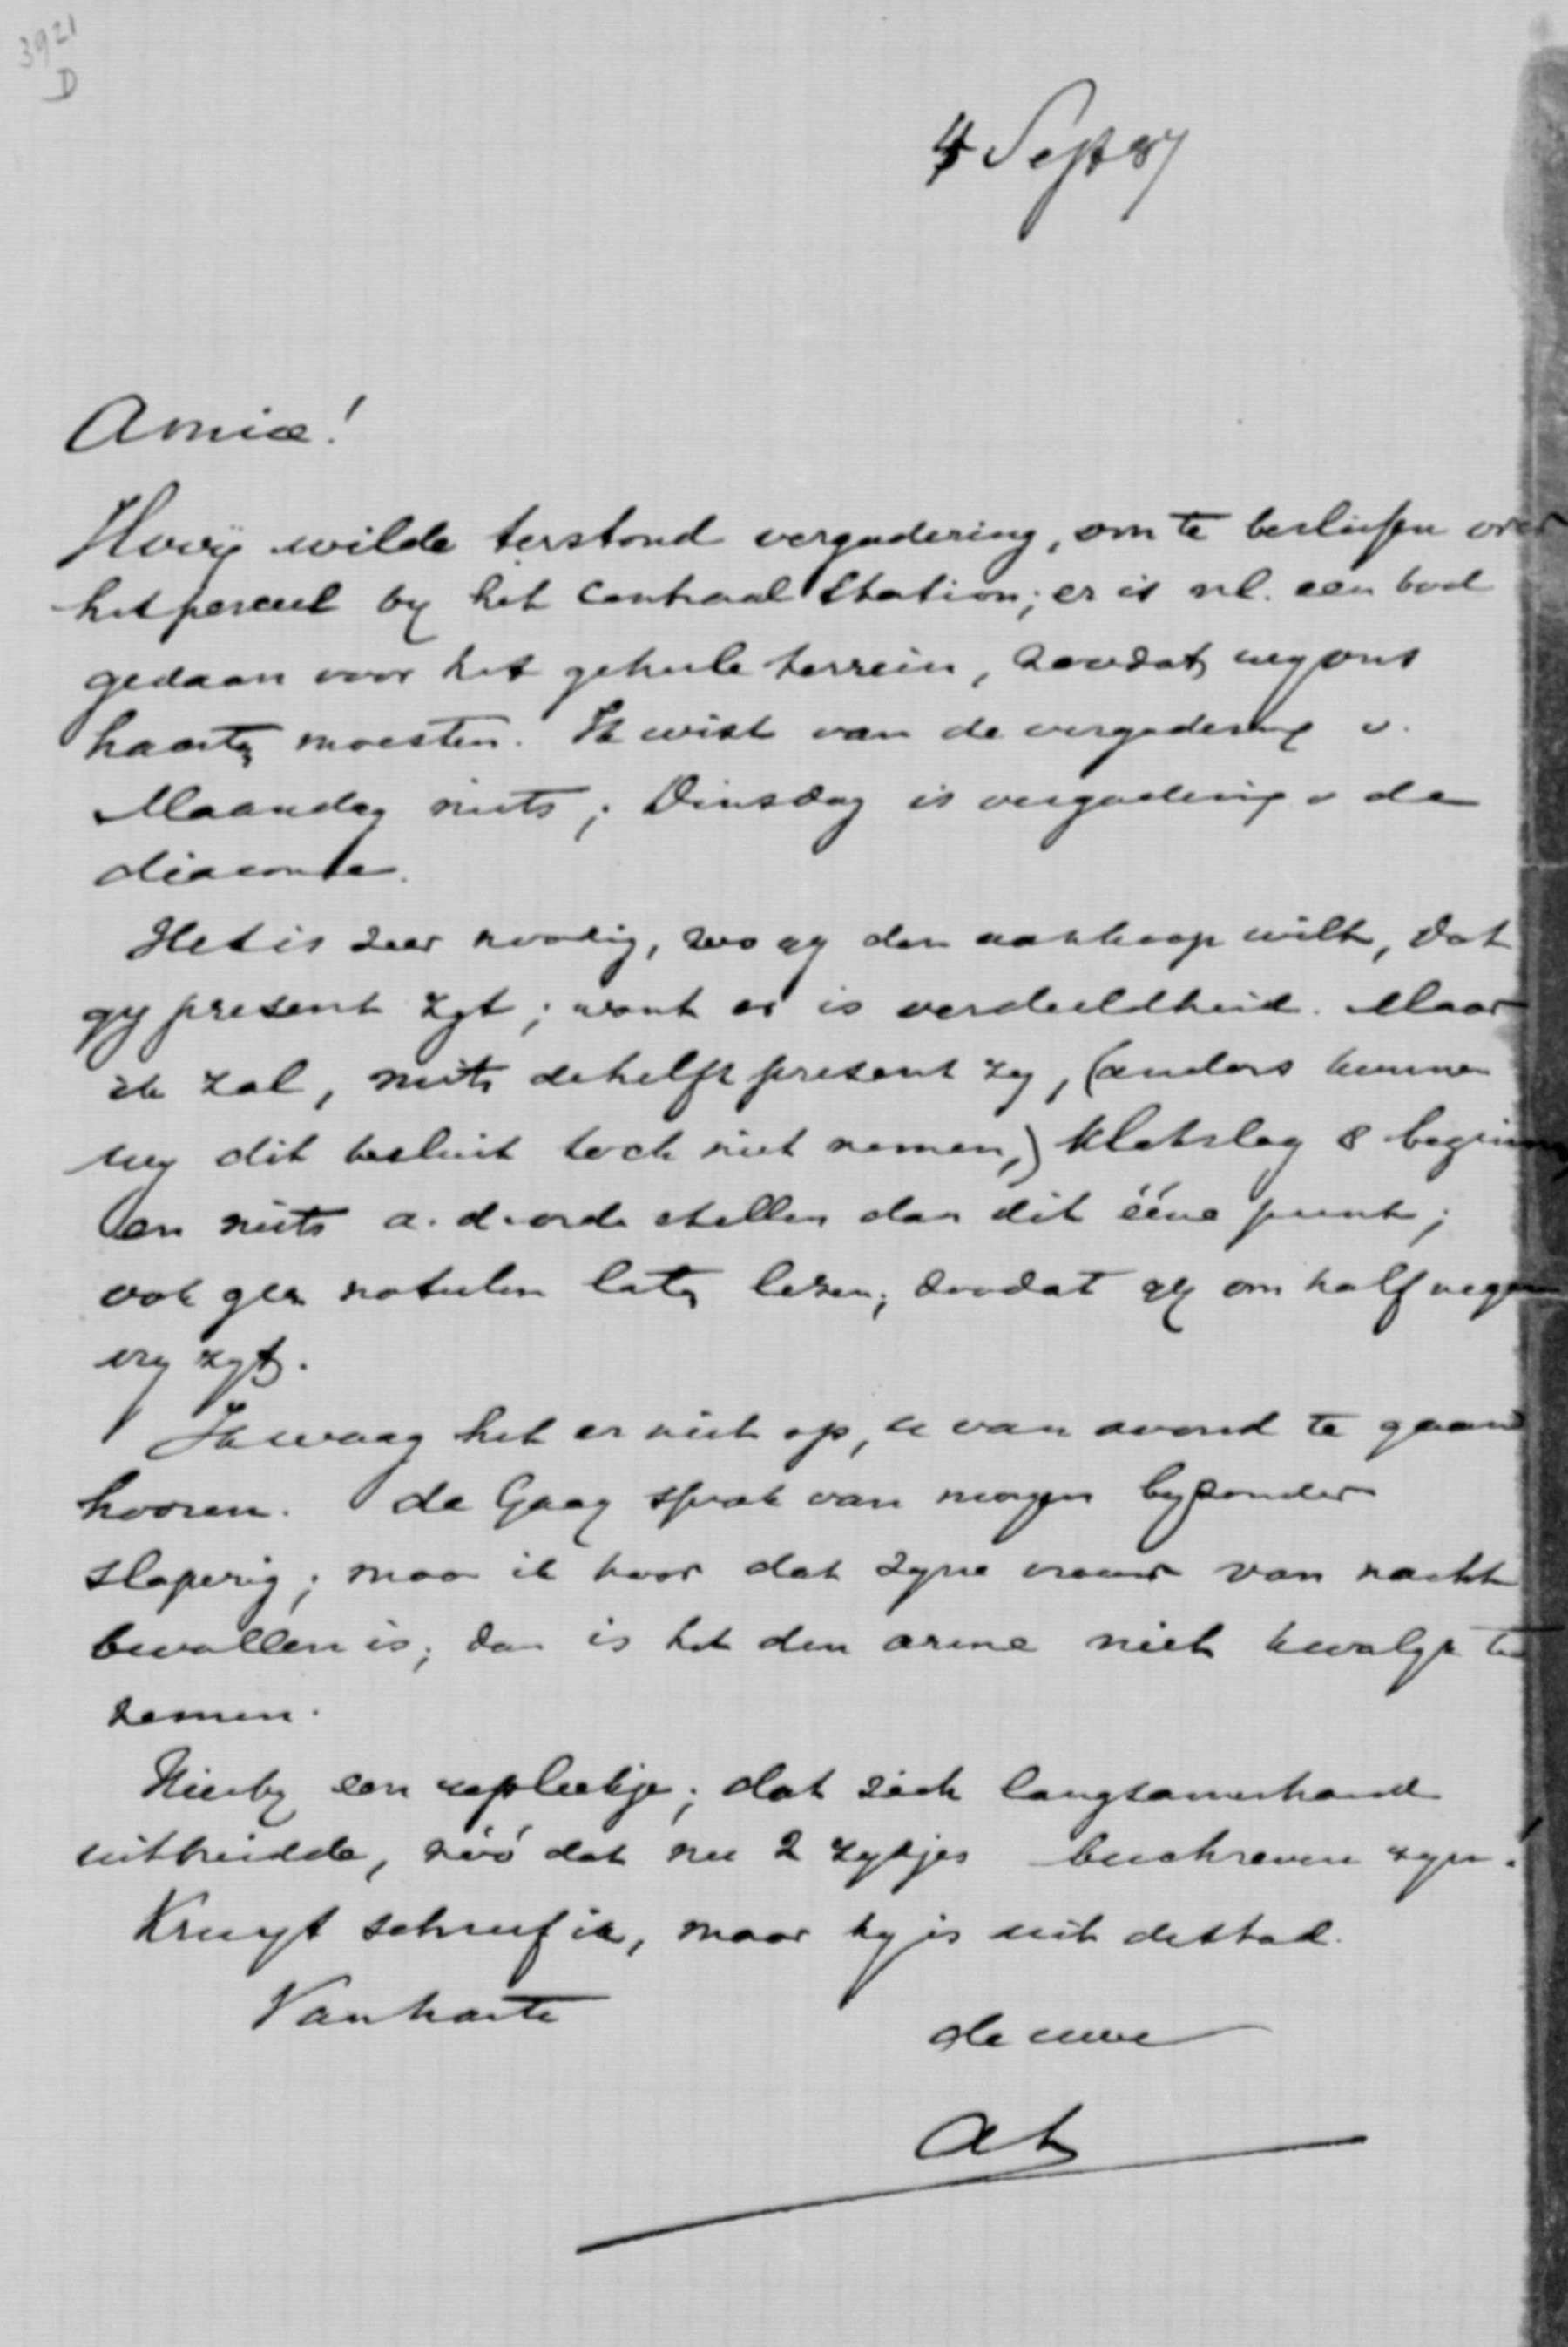 3921
D
4 Sept 87
Amice!
Hovÿ wilde terstond vergadering, om te beslissen over
het perceel by het Centraal Station; er is nl. een bod
gedaan voor het geheele terrein, zoodat wy ons
haasten moesten. Ik wist van de vergadering v.
Maandag niets; Dinsdag is vergadering v de
diaconie.
Het is zeer noodig, zoo gy den aankoop wilt, dat
gy present zyt; want er is verdeeldheid. Maar
ik zal, mits de helft present zy, (anders kunnen
wy dit besluit toch niet nemen,) klokslag 8 beginnen
en niets a. d. orde stellen dan dit ééne punt;
ook geen notulen laten lezen; zoodat gy om half negen
vry zyt.
Ik waag het er niet op, u van avond te gaan
hooren. de Gaay sprak van morgen byzonder
slaperig; maar ik hoor dat zyne vrouw van nacht
bevallen is; dan is het den arme niet kwalyk te
nemen.
Hierby een repliekje; dat zich langzamerhand
uitbreidde, zóó dat nu 2 zydjes beschreven zyn.
Kruyt schreef ik, maar hy is uit de stad.
Van harte
de uwe